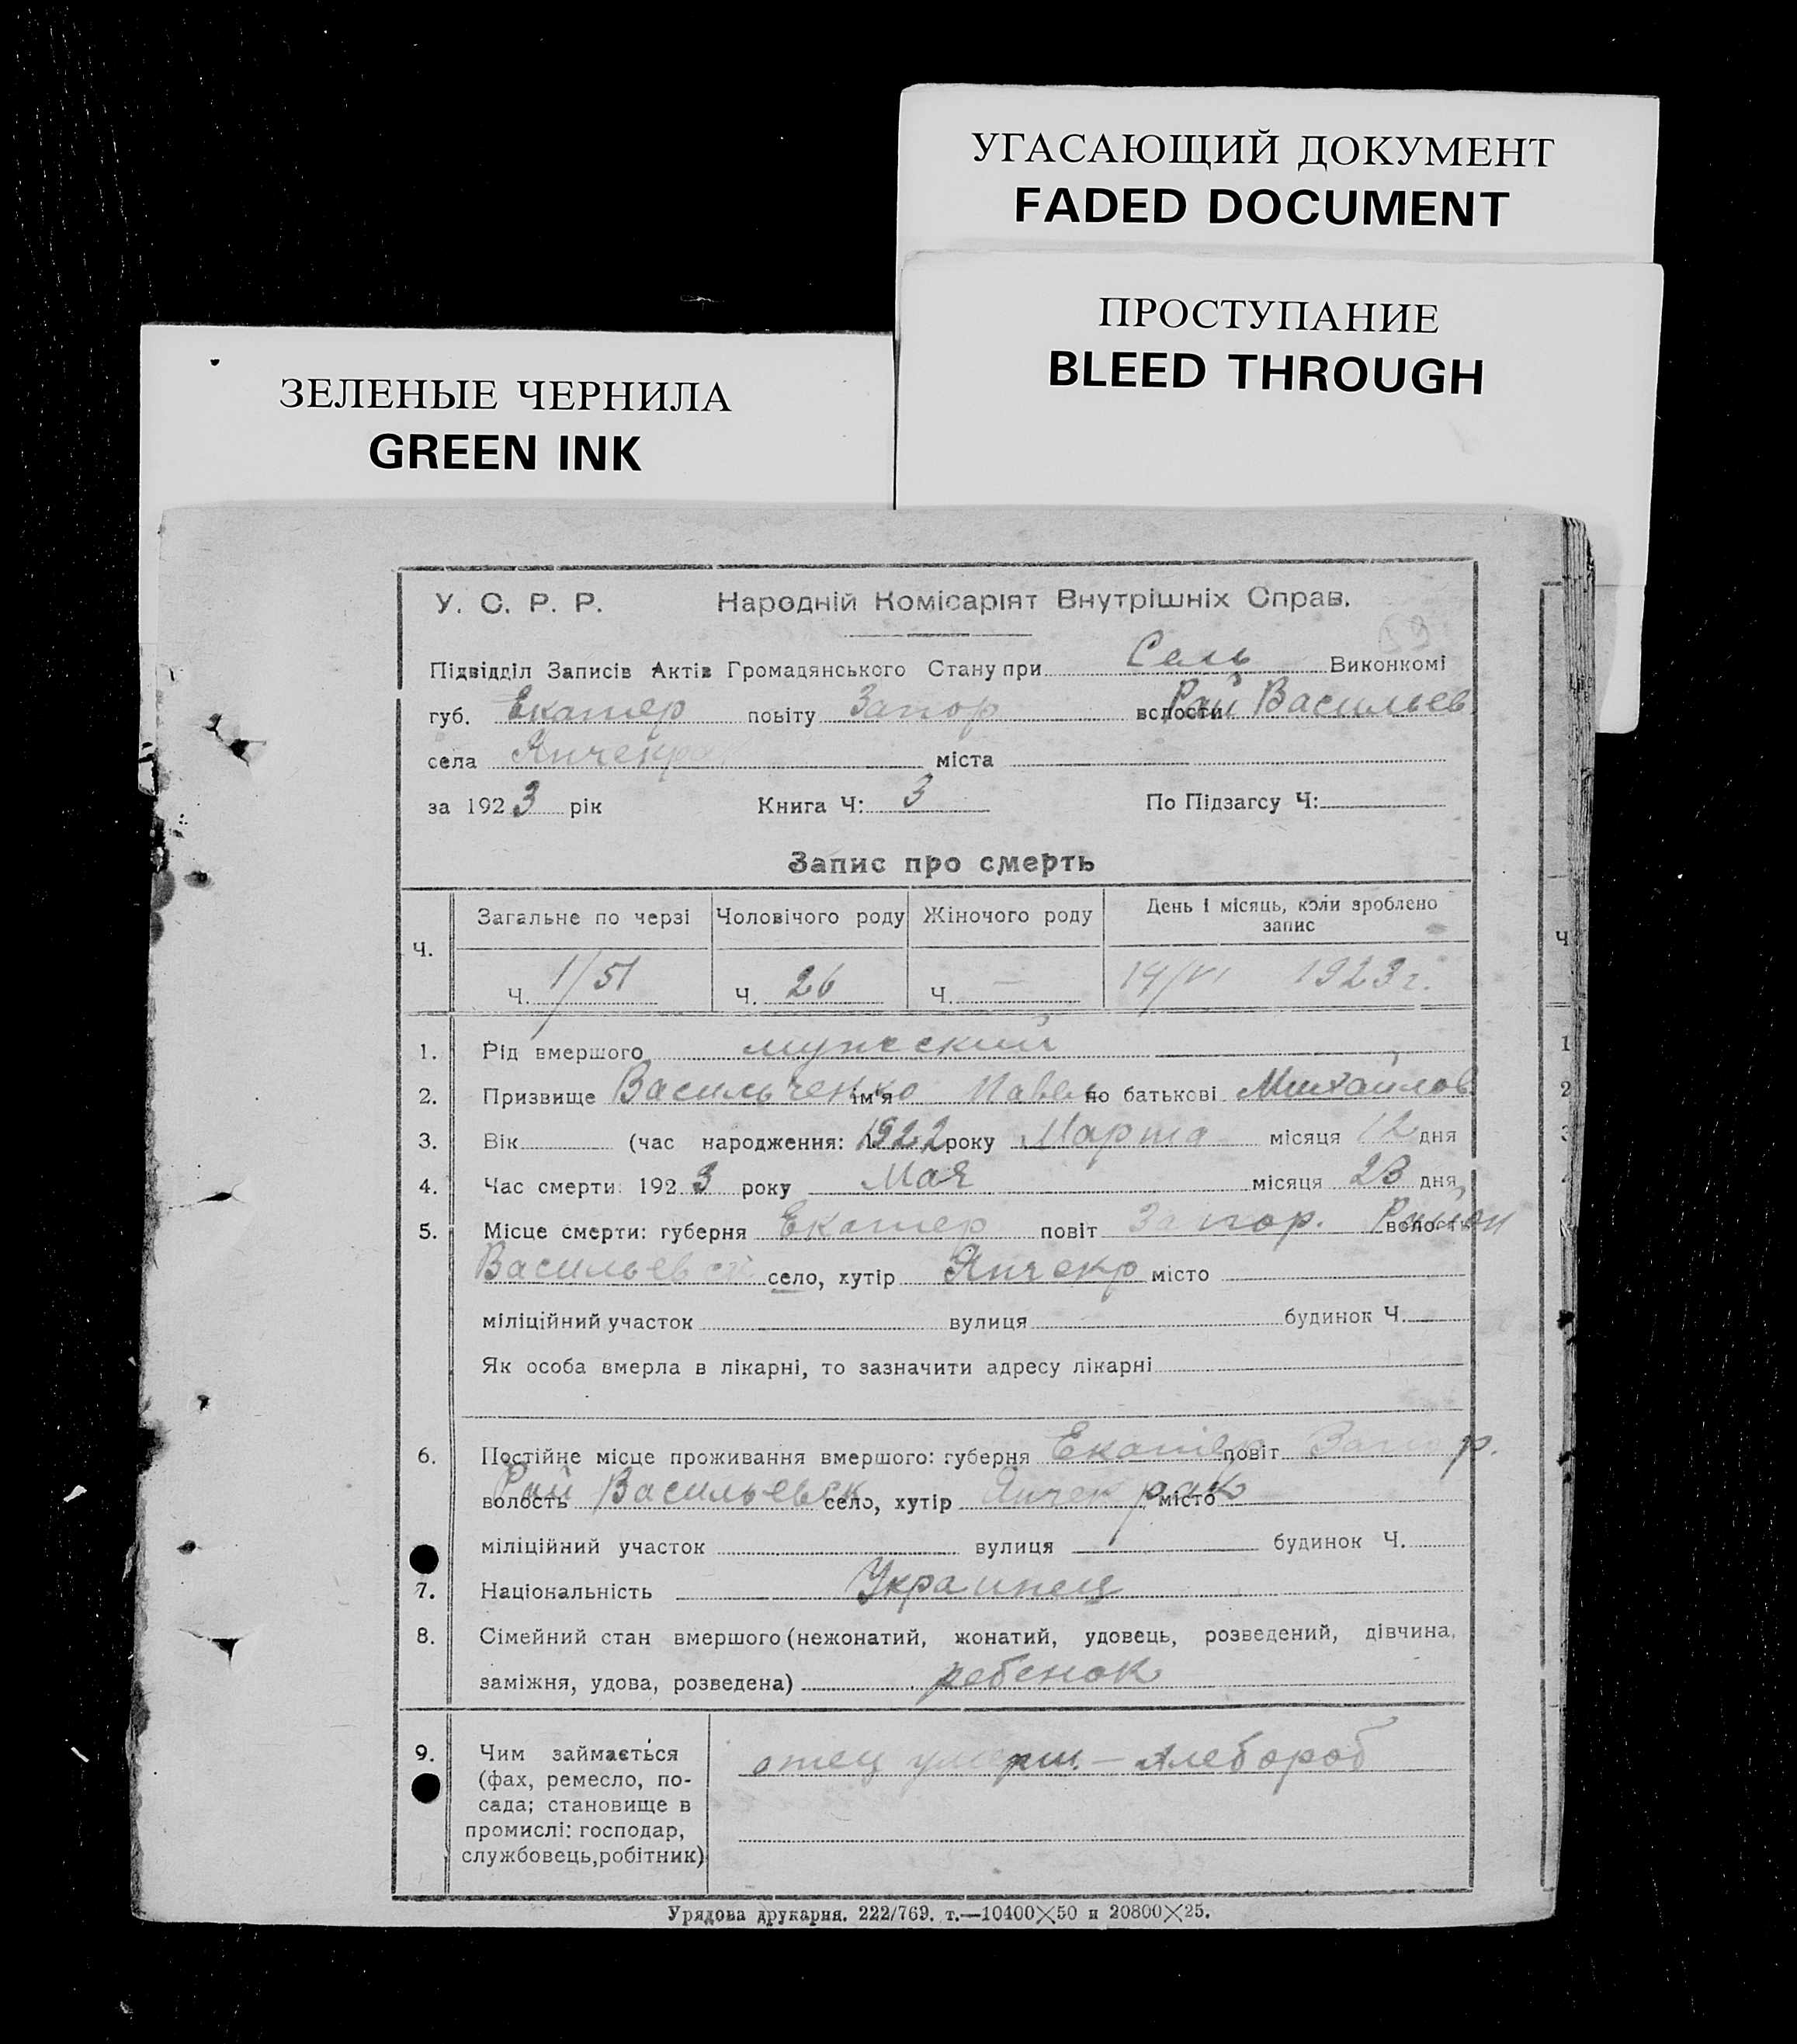 УГАСАЮЩИЙ ДОКУМЕНТ
FADED DOCUMENT
ПРОСТУПАНИЕ
BLEED THROUGH
ЗЕЛЕНЫЕ ЧЕРНИЛА
GREEN INK
У. С. Р. Р. Народній Комісаріят Внутрішніх Справ.
Підвідділ Записів Актів Громадянського Стану при Сель Виконкомі
губ. Екатер повіту Запор волости Рай Васильев
села Янчекрак міста
за 1923 рік Книга Ч: 3 По Підзагсу Ч:
Запис про смерть
Ч. Загальне по черзі Чоловічого роду Жіночого роду День і місяць, коли зроблено запис
Ч. 1/51 Ч. 26 Ч. — 14/VI 1923 г.
1. Рід вмершого мужеский
2. Призвище Васильченко ім'я Павел по батькові Михайлов
3. Вік (час народження: 1922 року Марта місяця 12 дня
4. Час смерти: 1923 року Мая місяця 23 дня
5. Місце смерти: губерня Екатер повіт Запор. волость Район
Васильевск село, хутір Янчекр місто
міліційний участок вулиця будинок Ч.
Як особа вмерла в лікарні, то зазначити адресу лікарні
6. Постійне місце проживання вмершого: губерня Екатер повіт Запор.
волость Рай Васильевск село, хутір Янчекрак місто
міліційний участок вулиця будинок Ч.
7. Національність Украинец
8. Сімейний стан вмершого (нежонатий, жонатий, удовець, розведений, дівчина,
заміжня, удова, розведена) ребенок
9. Чим займається отец умерш. — хлебороб
(фах, ремесло, по-
сада; становище в
промислі: господар,
службовець, робітник)
Урядова друкарня. 222/769. т.—10400×50 и 20800×25.
Ч
1
2
3